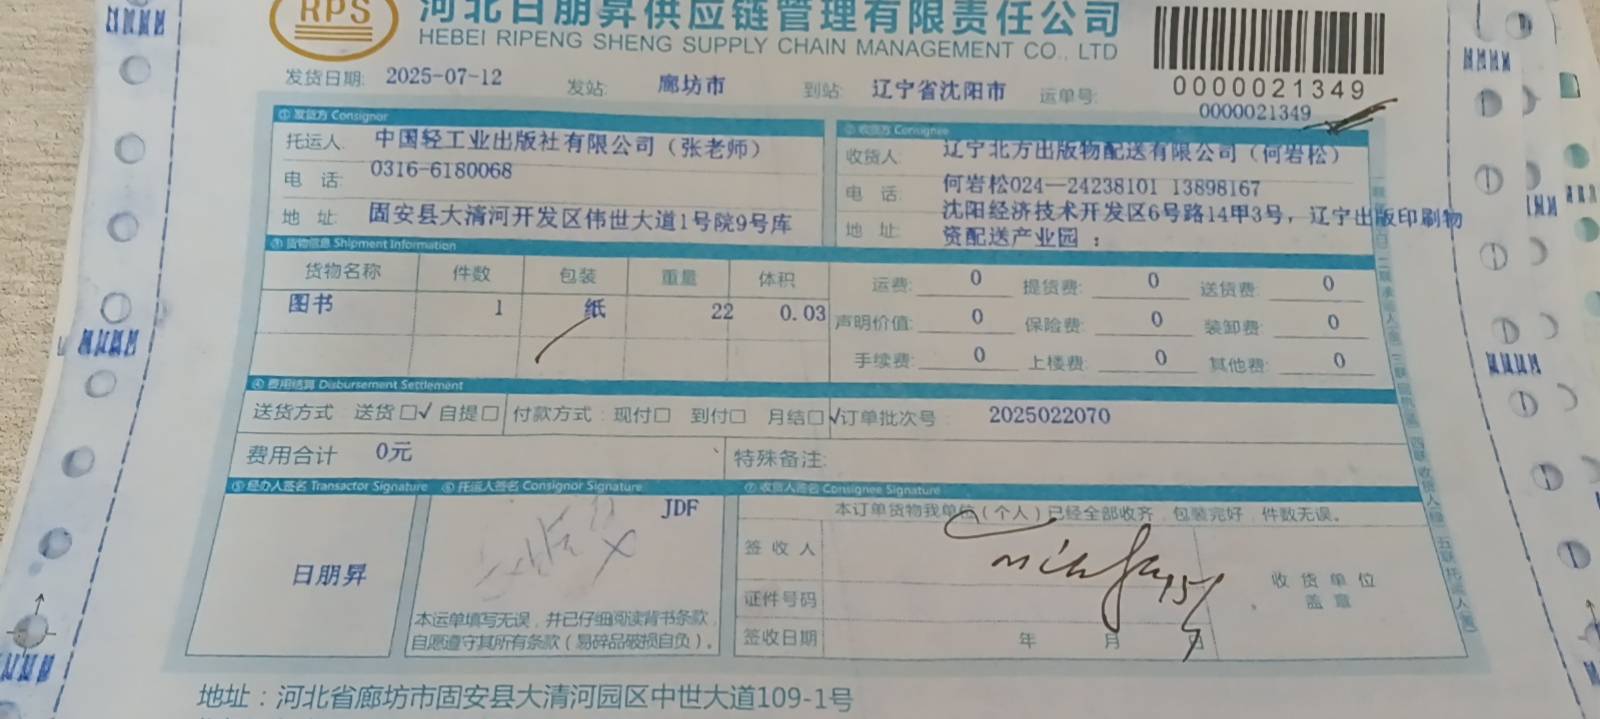 RPS
河北日朋昇供应链管理有限责任公司
HEBEI RIPENG SHENG SUPPLY CHAIN MANAGEMENT CO., LTD
发货日期: 2025-07-12 发站: 廊坊市 到站: 辽宁省沈阳市 运单号:
0000021349
0000021349
① 发货方 Consignor
托运人: 中国轻工业出版社有限公司（张老师）
电 话: 0316-6180068
地 址: 固安县大清河开发区伟世大道1号院9号库
② 收货方 Consignee
收货人: 辽宁北方出版物配送有限公司（何岩松）
电 话: 何岩松024—24238101 13898167
地 址: 沈阳经济技术开发区6号路14甲3号，辽宁出版印刷物
资配送产业园 ；
③ 货物信息 Shipment Information
货物名称 件数 包装 重量 体积
图书 1 纸 22 0.03
运费: 0 提货费: 0 送货费: 0
声明价值: 0 保险费: 0 装卸费: 0
手续费: 0 上楼费: 0 其他费: 0
④ 费用结算 Disbursement Settlement
送货方式 送货□√ 自提□ 付款方式: 现付□ 到付□ 月结□√ 订单批次号 2025022070
费用合计 0元 特殊备注:
⑤ 经办人签名 Transactor Signature
日朋昇
⑥ 托运人签名 Consignor Signature
JDF
本运单填写无误，并已仔细阅读背书条款，
自愿遵守其所有条款（易碎品破损自负）。
⑦ 收货人签名 Consignee Signature
本订单货物我单位（个人）已经全部收齐，包装完好，件数无误。
签 收 人
证件号码
签收日期 年 月 日
收 货 单 位
盖 章
地址：河北省廊坊市固安县大清河园区中世大道109-1号